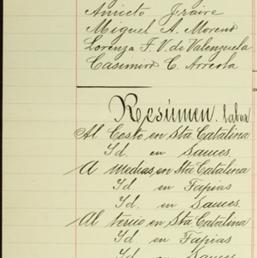 Aniceto Fraire
Miguel A. Moreno
Lorenza F. V. de Valenzuela
Casimiro C. Arreola
Resúmen. labor
Al Costo, en Sta Catalina
Id. en Sauces.
A Medias, en Sta Catalina
Id. en Tapias
Id. en Sauces.
Al tercio, en Sta Catalina
Id. en Tapias
Id. en Sauces